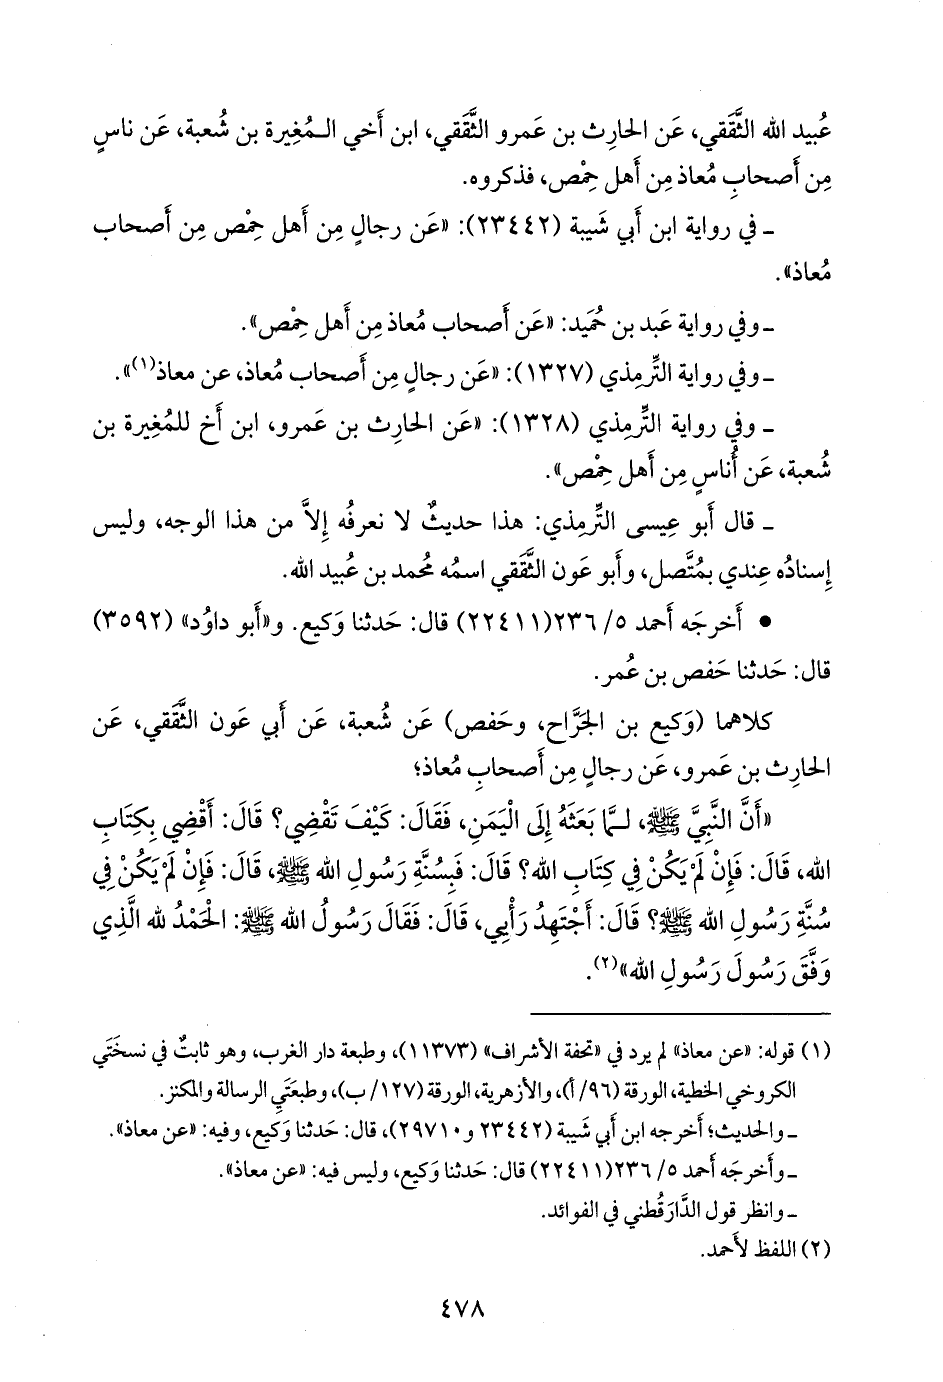 عُبيد الله الثَّقَفي، عَن الحارِث بن عَمرو الثَّقَفي، ابن أَخي الـمُغِيرة بن شُعبة، عَن ناسٍ
مِن أَصحابِ مُعاذ مِن أَهل حِمْص، فذكروه.
ـ في رواية ابن أَبي شَيبة (٢٣٤٤٢): «عَن رجالٍ مِن أَهل حِمْص مِن أَصحاب
مُعاذ».
ـ وفي رواية عَبد بن حُمَيد: «عَن أَصحاب مُعاذ مِن أَهل حِمْص».
ـ وفي رواية التِّرمِذي (١٣٢٧): «عَن رجالٍ مِن أَصحاب مُعاذ، عن معاذ(١)».
ـ وفي رواية التِّرمِذي (١٣٢٨): «عَن الحارِث بن عَمرو، ابن أَخ للمُغِيرة بن
شُعبة، عَن أُناسٍ مِن أَهل حِمْص».
ـ قال أَبو عِيسى التِّرمِذي: هذا حديثٌ لا نعرفُه إِلاَّ من هذا الوجه، وليس
إِسنادُه عِندي بمُتَّصل، وأَبو عَون الثَّقَفي اسمُه مُحمد بن عُبيد الله.
• أَخرجَه أَحمد ٥/ ٢٣٦(٢٢٤١١) قال: حَدثنا وَكيع. و«أَبو داوُد» (٣٥٩٢)
قال: حَدثنا حَفص بن عُمر.
كلاهما (وَكيع بن الجَرَّاح، وحَفص) عَن شُعبة، عَن أَبي عَون الثَّقَفي، عَن
الحارِث بن عَمرو، عَن رجالٍ مِن أَصحابِ مُعاذ؛
«أَنَّ النَّبِيَّ ﷺ، لـمَّا بَعَثَهُ إِلَى الْيَمَنِ، فَقَالَ: كَيْفَ تَقْضِي؟ قَالَ: أَقْضِي بِكِتَابِ
الله، قَالَ: فَإِنْ لَمْ يَكُنْ فِي كِتَابِ الله؟ قَالَ: فَبِسُنَّةِ رَسُولِ الله ﷺ، قَالَ: فَإِنْ لَمْ يَكُنْ فِي
سُنَّةِ رَسُولِ الله ﷺ؟ قَالَ: أَجْتَهِدُ رَأْيِي، قَالَ: فَقَالَ رَسُولُ الله ﷺ: الْحَمْدُ لله الَّذِي
وَفَّقَ رَسُولَ رَسُولِ الله»(٢).
(١) قوله: «عن معاذ» لم يرد في «تحفة الأشراف» (١١٣٧٣)، وطبعة دار الغرب، وهو ثابتٌ في نسختَي
الكروخي الخطية، الورقة (٩٦/ أ)، والأزهرية، الورقة (١٢٧/ ب)، وطبعَتَي الرسالة والمكنز.
ـ والحديث؛ أَخرجه ابن أَبي شَيبة (٢٣٤٤٢ و٢٩٧١٠)، قال: حَدثنا وَكيع، وفيه: «عن معاذ».
ـ وأَخرجَه أَحمد ٥/ ٢٣٦(٢٢٤١١) قال: حَدثنا وَكيع، وليس فيه: «عن معاذ».
ـ وانظر قول الدَّارَقُطني في الفوائد.
(٢) اللفظ لأَحمد.
٤٧٨